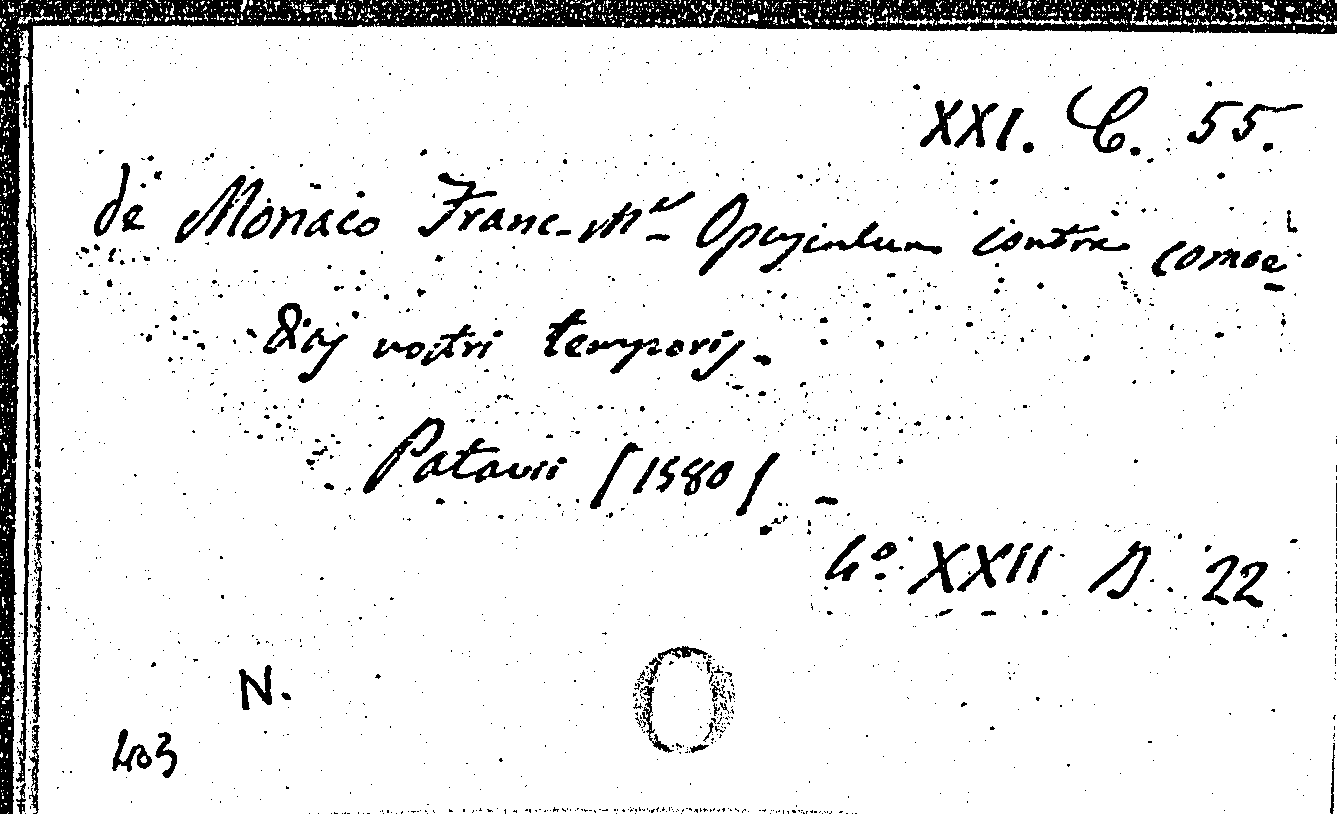 XXI. C. 55.
de Monaco Franc-Mª Opusculum contra comoe
dias nostri temporis.
Patavii [1580] -
4º XXII D 22
N.
O
403